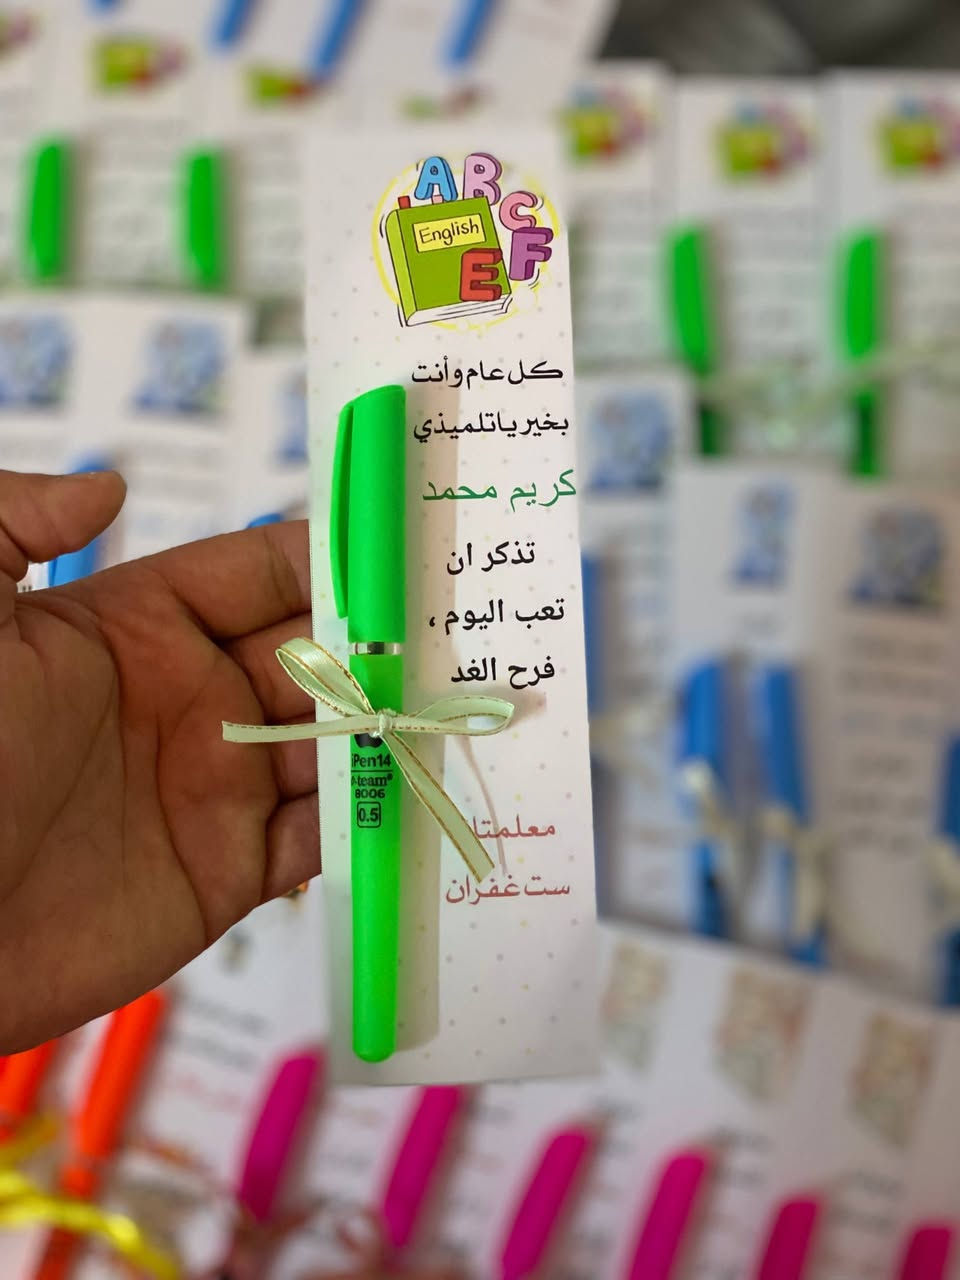 A B C
English
F
E
كل عام وأنت
بخير ياتلميذي
كريم محمد
تذكر ان
تعب اليوم ،
فرح الغد
iPen14
8006
0.5
ست غفران